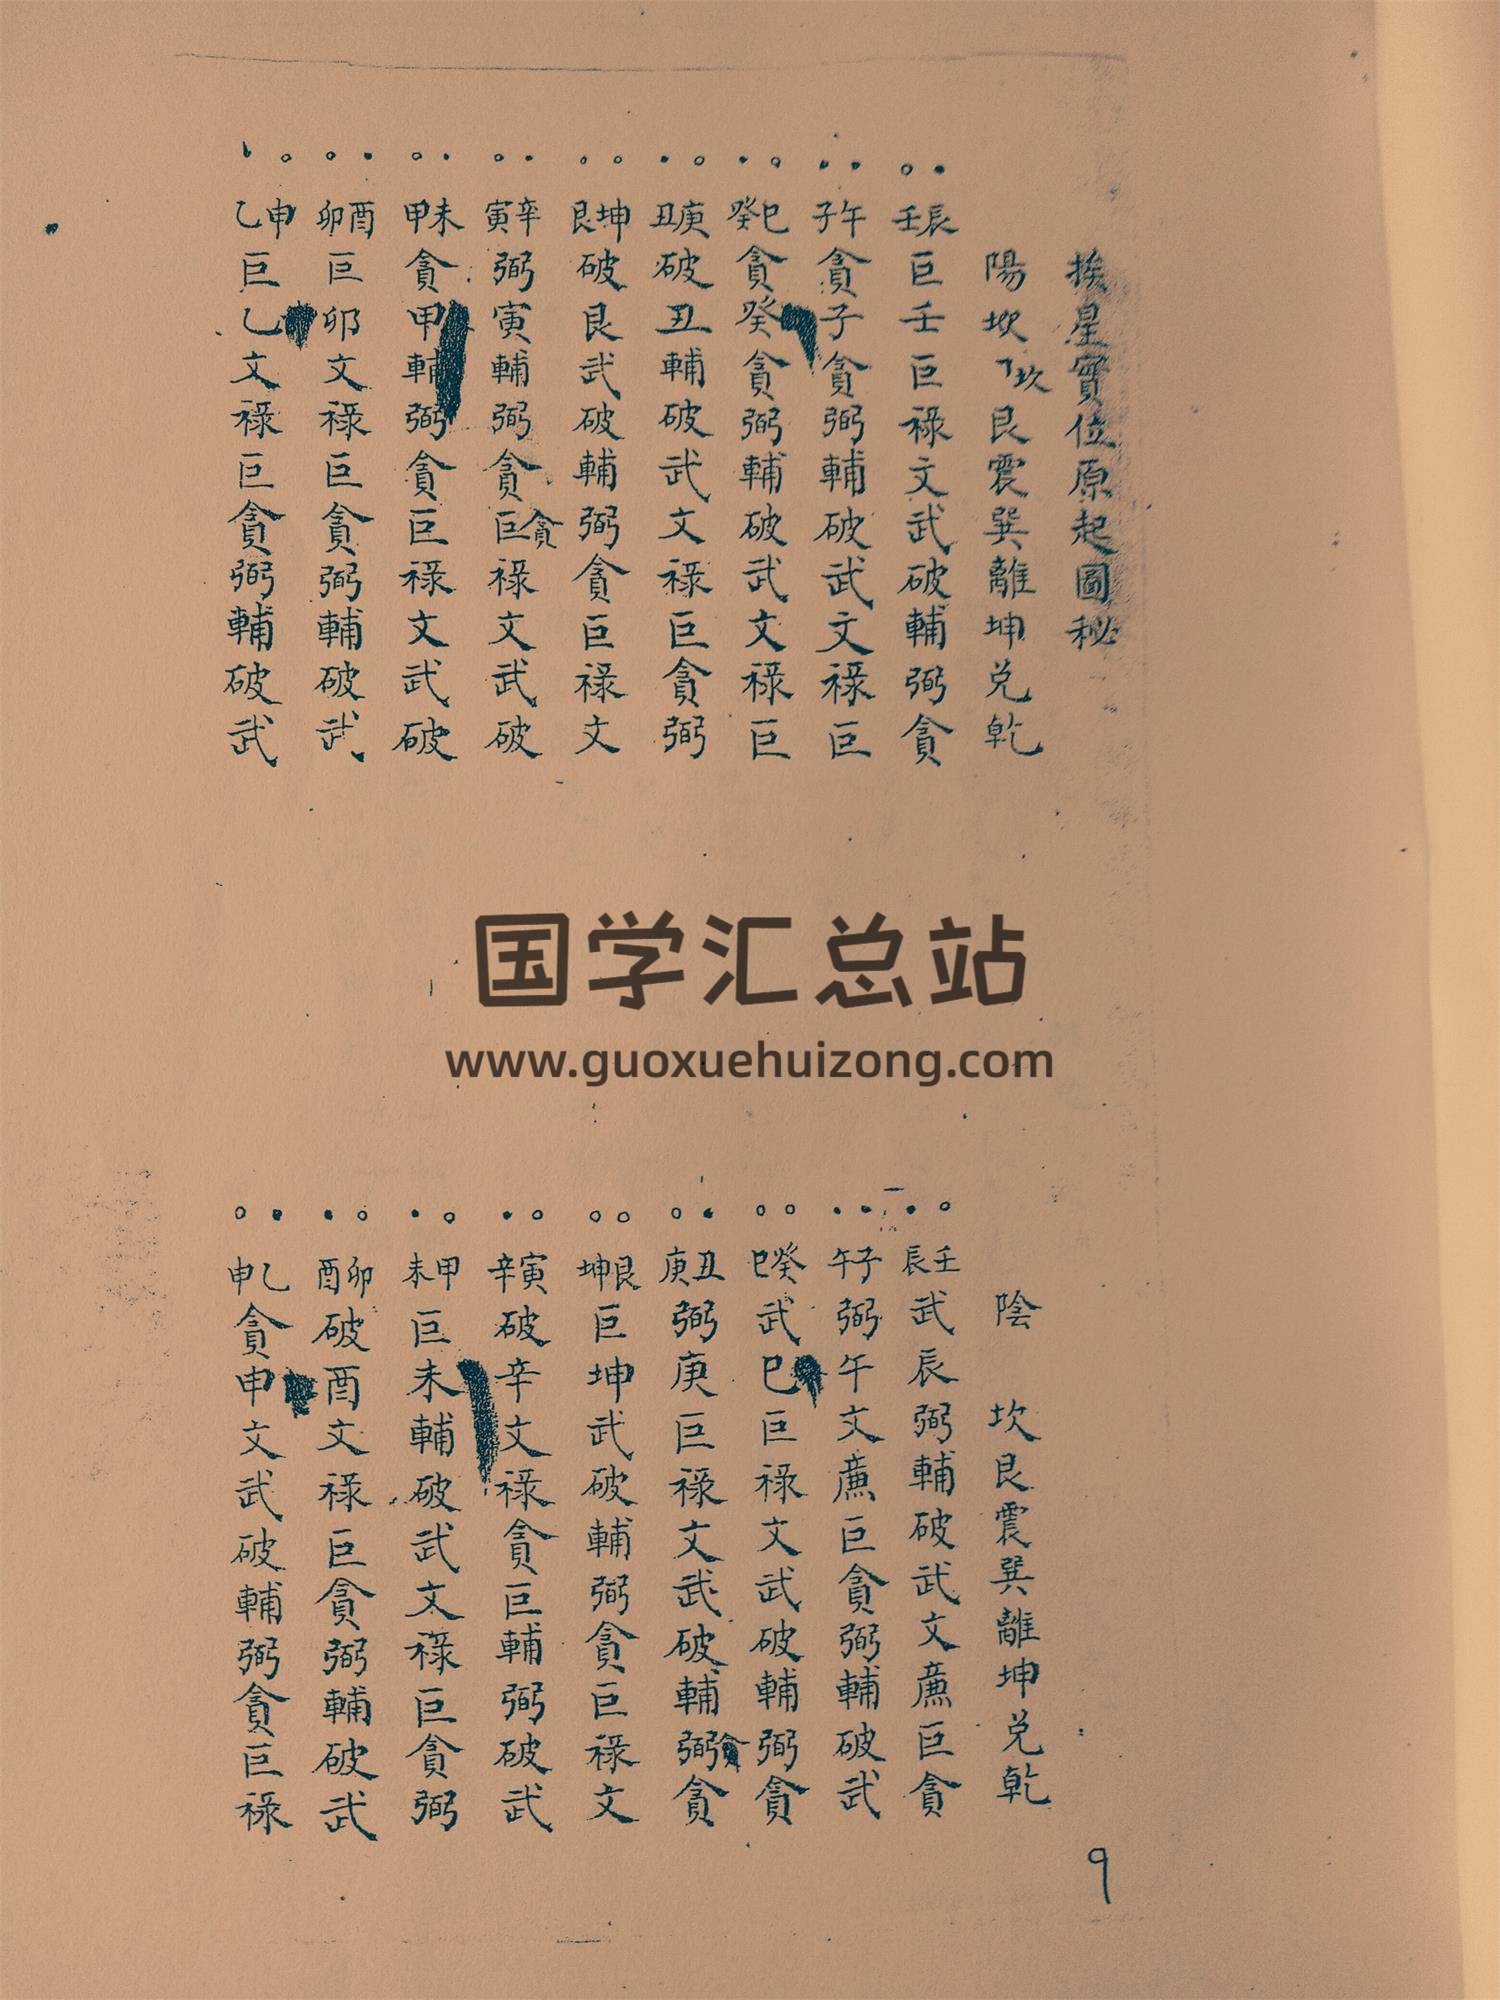 挨星實位原起圖秘
陽坎坎艮震巽離坤兌乾
壬辰巨壬巨祿文武破輔弼貪
子午貪子貪弼輔破武文祿巨
癸巳貪癸貪弼輔破武文祿巨
丑庚破丑輔破武文祿巨貪弼
艮坤破艮武破輔弼貪巨祿文
寅辛弼寅輔弼貪巨貪祿文武破
甲未貪甲輔弼貪巨祿文武破
卯酉巨卯文祿巨貪弼輔破武
乙申巨乙文祿巨貪弼輔破武
国学汇总站
www.guoxuehuizong.com
陰 坎艮震巽離坤兌乾
辰壬武辰弼輔破武文廉巨貪
午子弼午文廉巨貪弼輔破武
巳癸武巳巨祿文武破輔弼貪
庚丑弼庚巨祿文武破輔弼貪
坤艮巨坤武破輔弼貪巨祿文
辛寅破辛文祿貪巨輔弼破武
未甲巨未輔破武文祿巨貪弼
酉卯破酉文祿巨貪弼輔破武
申乙貪申文武破輔弼貪巨祿
9